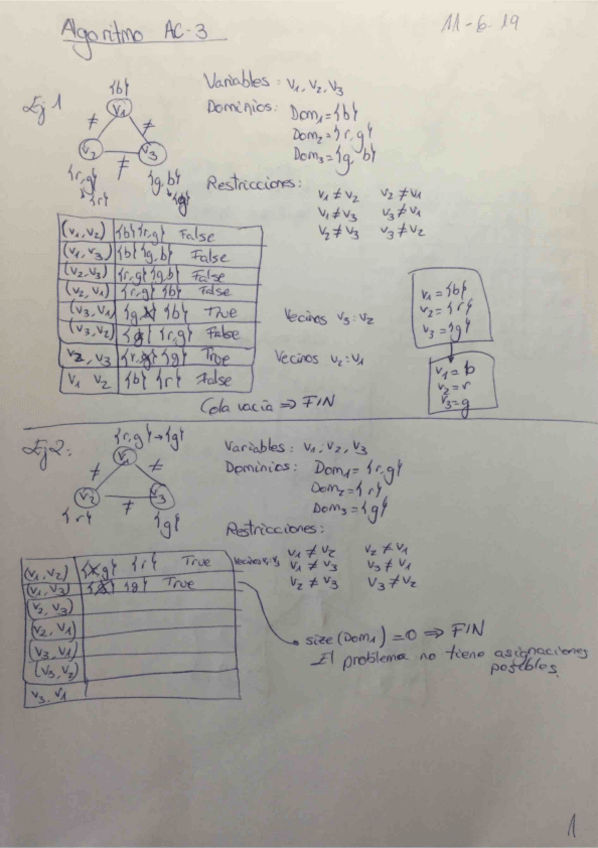 Algoritmo AC-3
11-6-19
Ej 1
{b}
V1
≠ ≠
V2 ≠ V3
{r,g} {g,b}
{r} {g}
Variables: V1, V2, V3
Dominios: Dom1={b}
Dom2={r,g}
Dom3={g,b}
Restricciones:
V1≠V2 V2≠V1
V1≠V3 V3≠V1
V2≠V3 V3≠V2
(V1,V2) {b}{r,g} False
(V1,V3) {b}{g,b} False
(V2,V3) {r,g}{g,b} False
(V2,V1) {r,g}{b} False
(V3,V1) {g,b} {b} True Vecinos V3: V2
(V3,V2) {g} {r,g} False
V2, V3 {r,g} {g} True Vecinos V2: V1
V1 V2 {b} {r} False
V1={b}
V2={r}
V3={g}
V1=b
V2=r
V3=g
Cola vacía ⇒ FIN
Ej 2:
{r,g}→{g}
V1
≠ ≠
V2 ≠ V3
{r} {g}
Variables: V1, V2, V3
Dominios: Dom1={r,g}
Dom2={r}
Dom3={g}
Restricciones:
V1≠V2 V2≠V1
V1≠V3 V3≠V1
V2≠V3 V3≠V2
(V1,V2) {r,g} {r} True Vecinos V1: V3
(V1,V3) {g} {g} True
(V2,V3)
(V2,V1)
(V3,V1)
(V3,V2)
V3,V1
size(Dom1)=0 ⇒ FIN
El problema no tiene asignaciones
posibles.
1